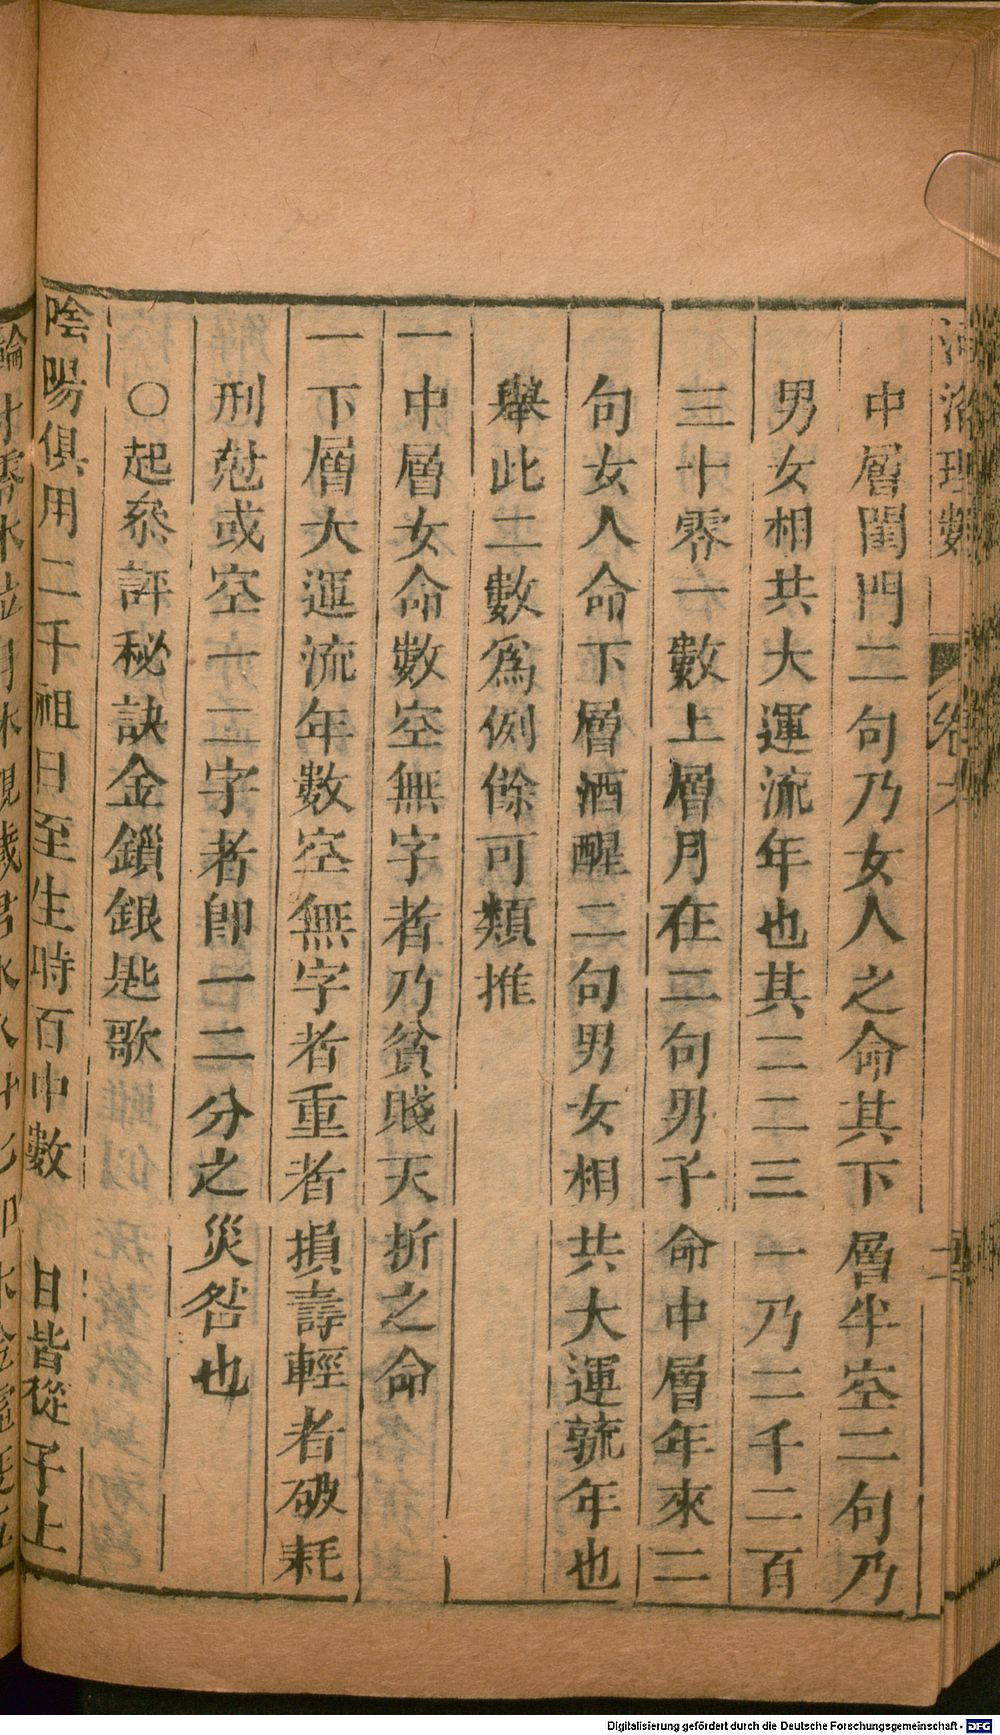 河洛理數 卷六
中層閨門二句乃女人之命其下層半空二句乃
男女相共大運流年也其二二三一乃二千二百
三十零一數上層月在二句男子命中層年來二
句女人命下層酒醒二句男女相共大運流年也
舉此二數爲例餘可類推
一中層女命數空無字者乃貧賤夭折之命
一下層大運流年數空無字者重者損壽輕者破耗
刑尅或空一二字者卽一二分之災咎也
○起叅評秘訣金鎖銀匙歌
陰陽俱用二千祖日至生時百中數 日皆從子上
Digitalisierung gefördert durch die Deutsche Forschungsgemeinschaft - DFG